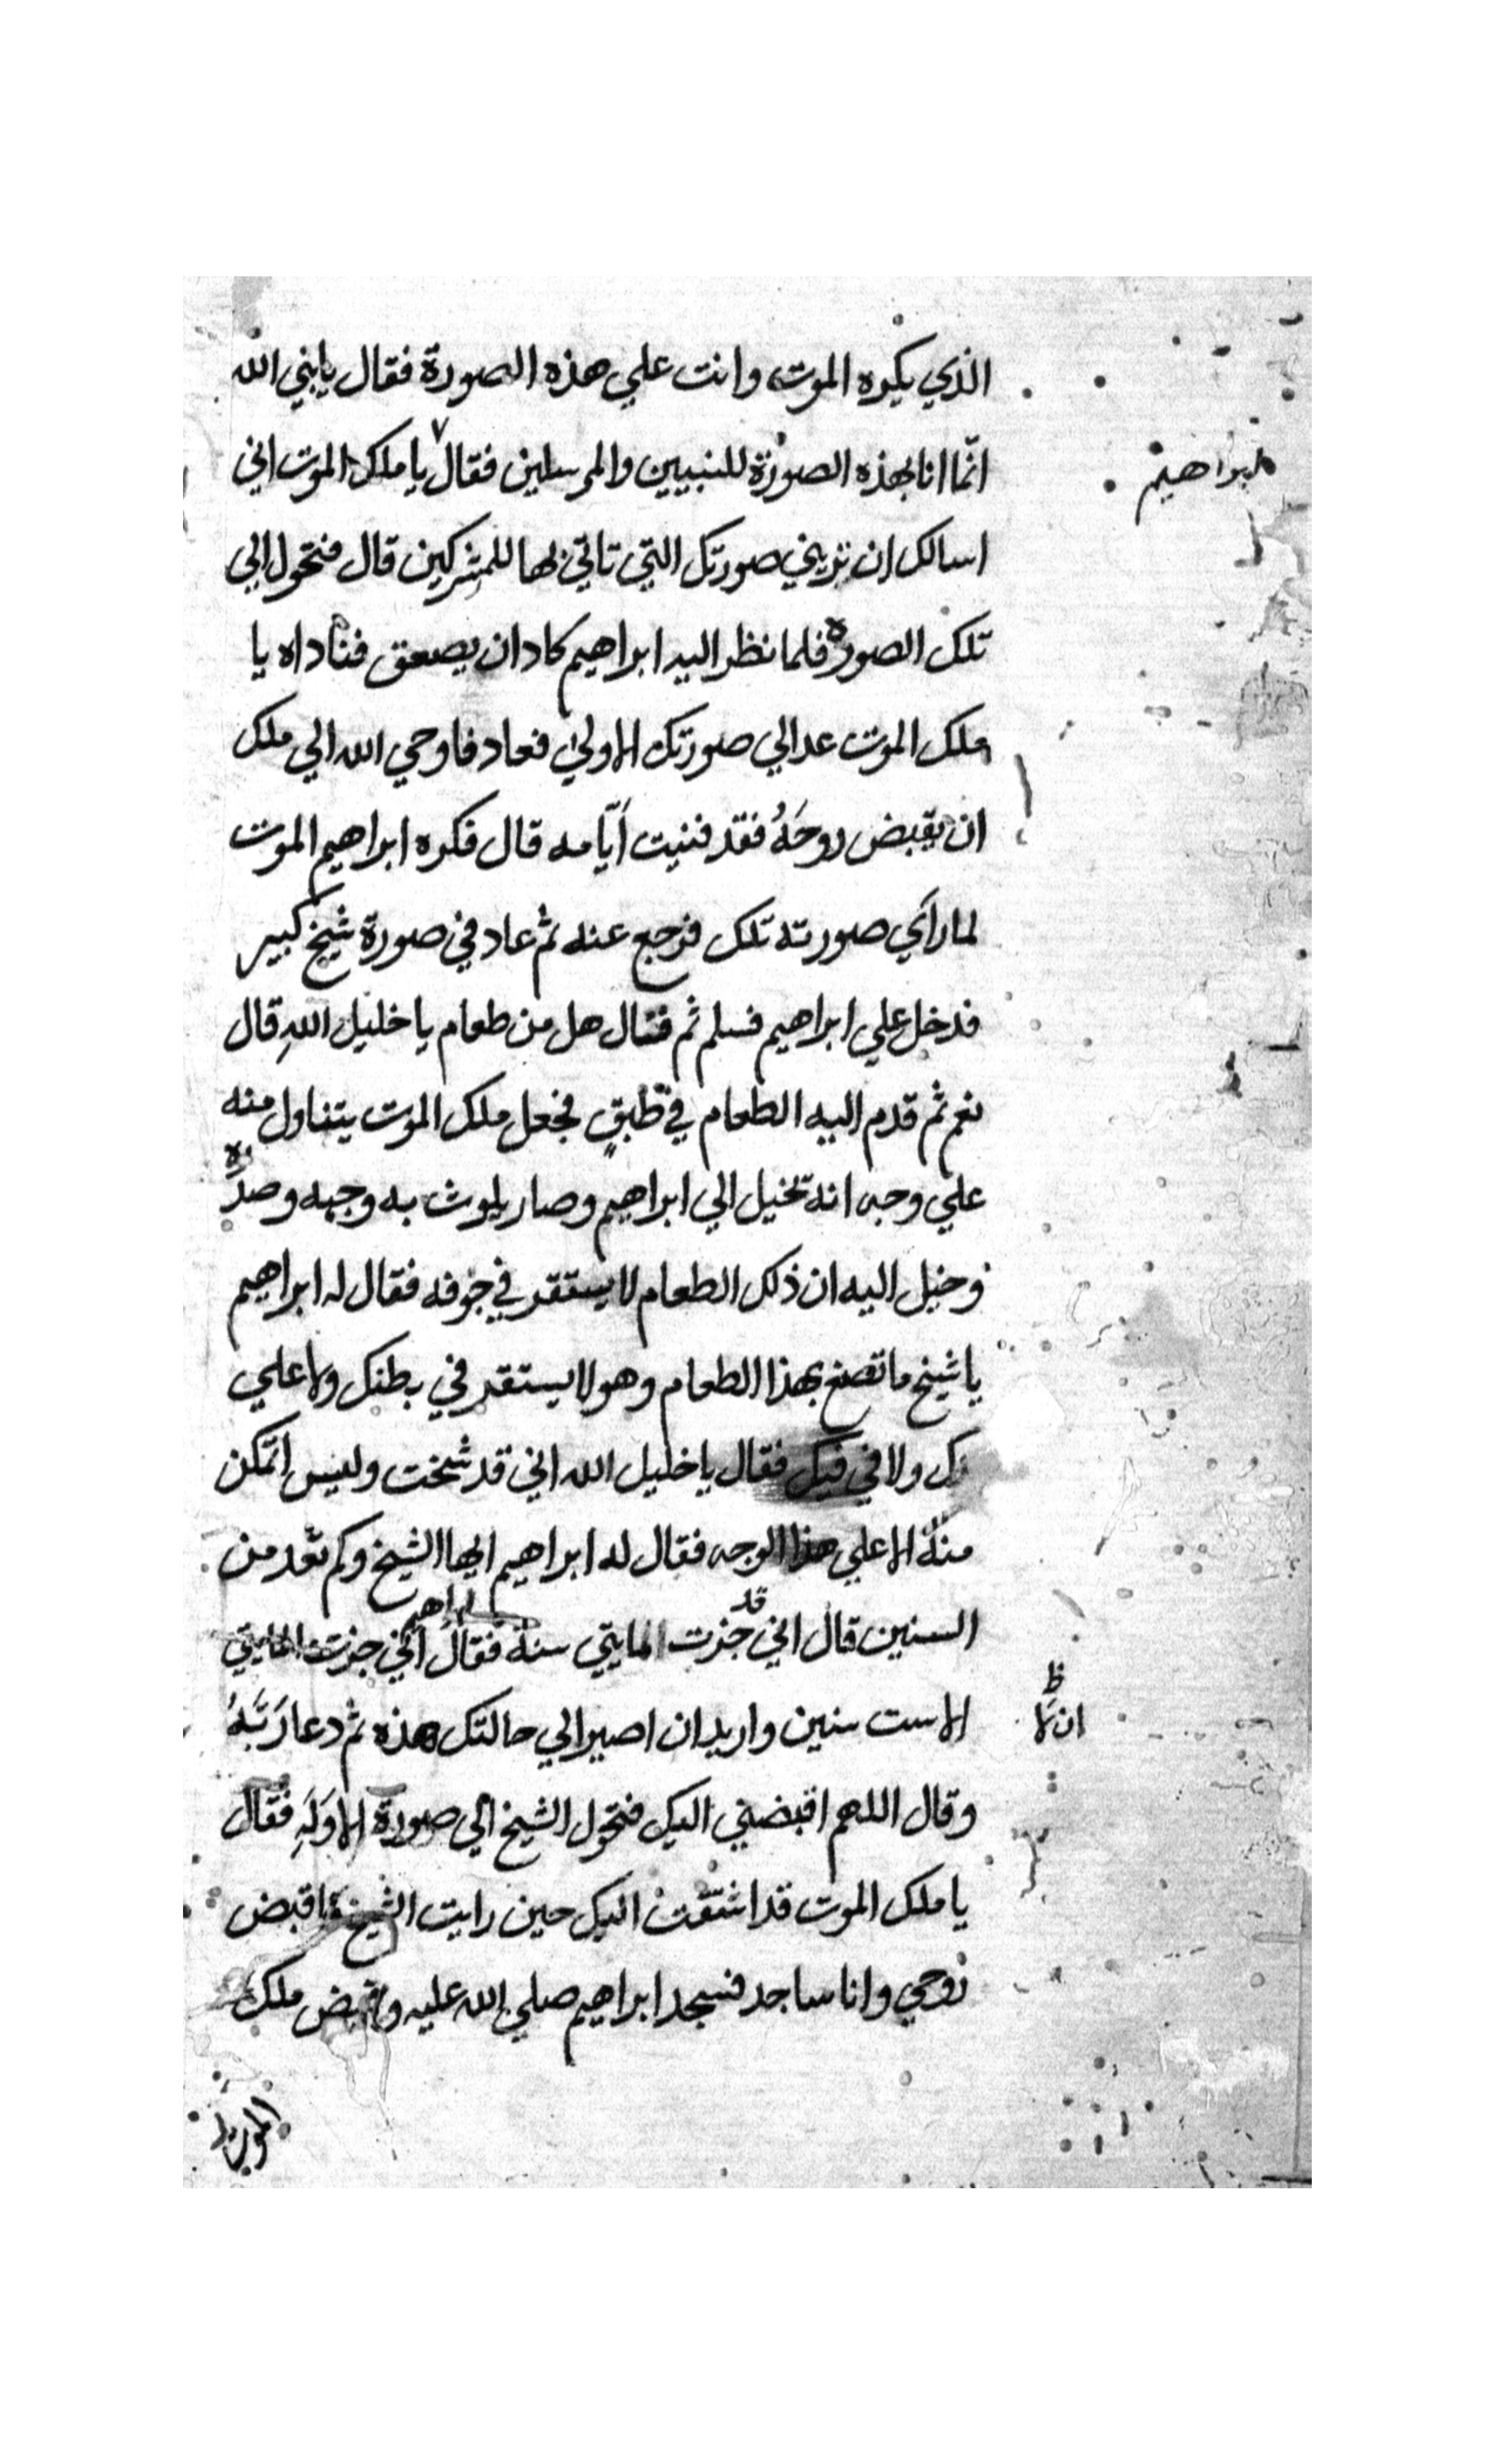 الذي يكره الموت وانت علي هذه الصورة فقال يابني الله
انّما انا بهذه الصورة للنبيين والمرسلين فقال يا ملك الموت اني
ابراهيم
اسالك ان تريني صورتك التي تاتي بها للمشركين قال فتحول الي
تلك الصورة فلما نظر اليه ابراهيم كاد ان يصعق فناداه يا
ملك الموت عد الي صورتك الاولي فعاد فاوحي الله الي ملك
ان يقبض روحَهُ فقد فنيت اَيّامه قال فكره ابراهيم الموت
لما رآي صورته تلك فرجع عنه ثم عاد في صورة شيخ كبير
فدخل علي ابراهيم فسلم ثم فقال هل من طعام يا خليل اللهِ قال
نعم ثم قدم اليه الطعام في طبقٍ فجعل ملك الموت يتناول منه
علي وجه انه تخيل الي ابراهيم وصار يلوث به وجهه وصدره
وخيل اليه ان ذلك الطعام لا يستقر في جوفه فقال له ابراهيم
يا شيخ ما تصنع بهذا الطعام وهو لا يستقر في بطنك ولا علي
ولا في فيك فقال يا خليل الله اني قد شخت وليس اتمكن
منه الا علي هذا الوجه فقال له ابراهيم ايها الشيخ وكم تعد من
السنين قال اني قد جزت المايتي سنة فقال ابراهيم اني جزت المايتي
الا ست سنين واريد ان اصير الي حالتك هذه ثم دعا رَبَّهُ
ان لا
ظ
وقال اللهم اقبضني اليك فتحول الشيخ الي صورة الاوَلَهِ فقال
يا ملك الموت قد اشتقت اليك حين رايت الشيخ فاقبض
روحي وانا ساجد فسجد ابراهيم صلي الله عليه وقبض ملك